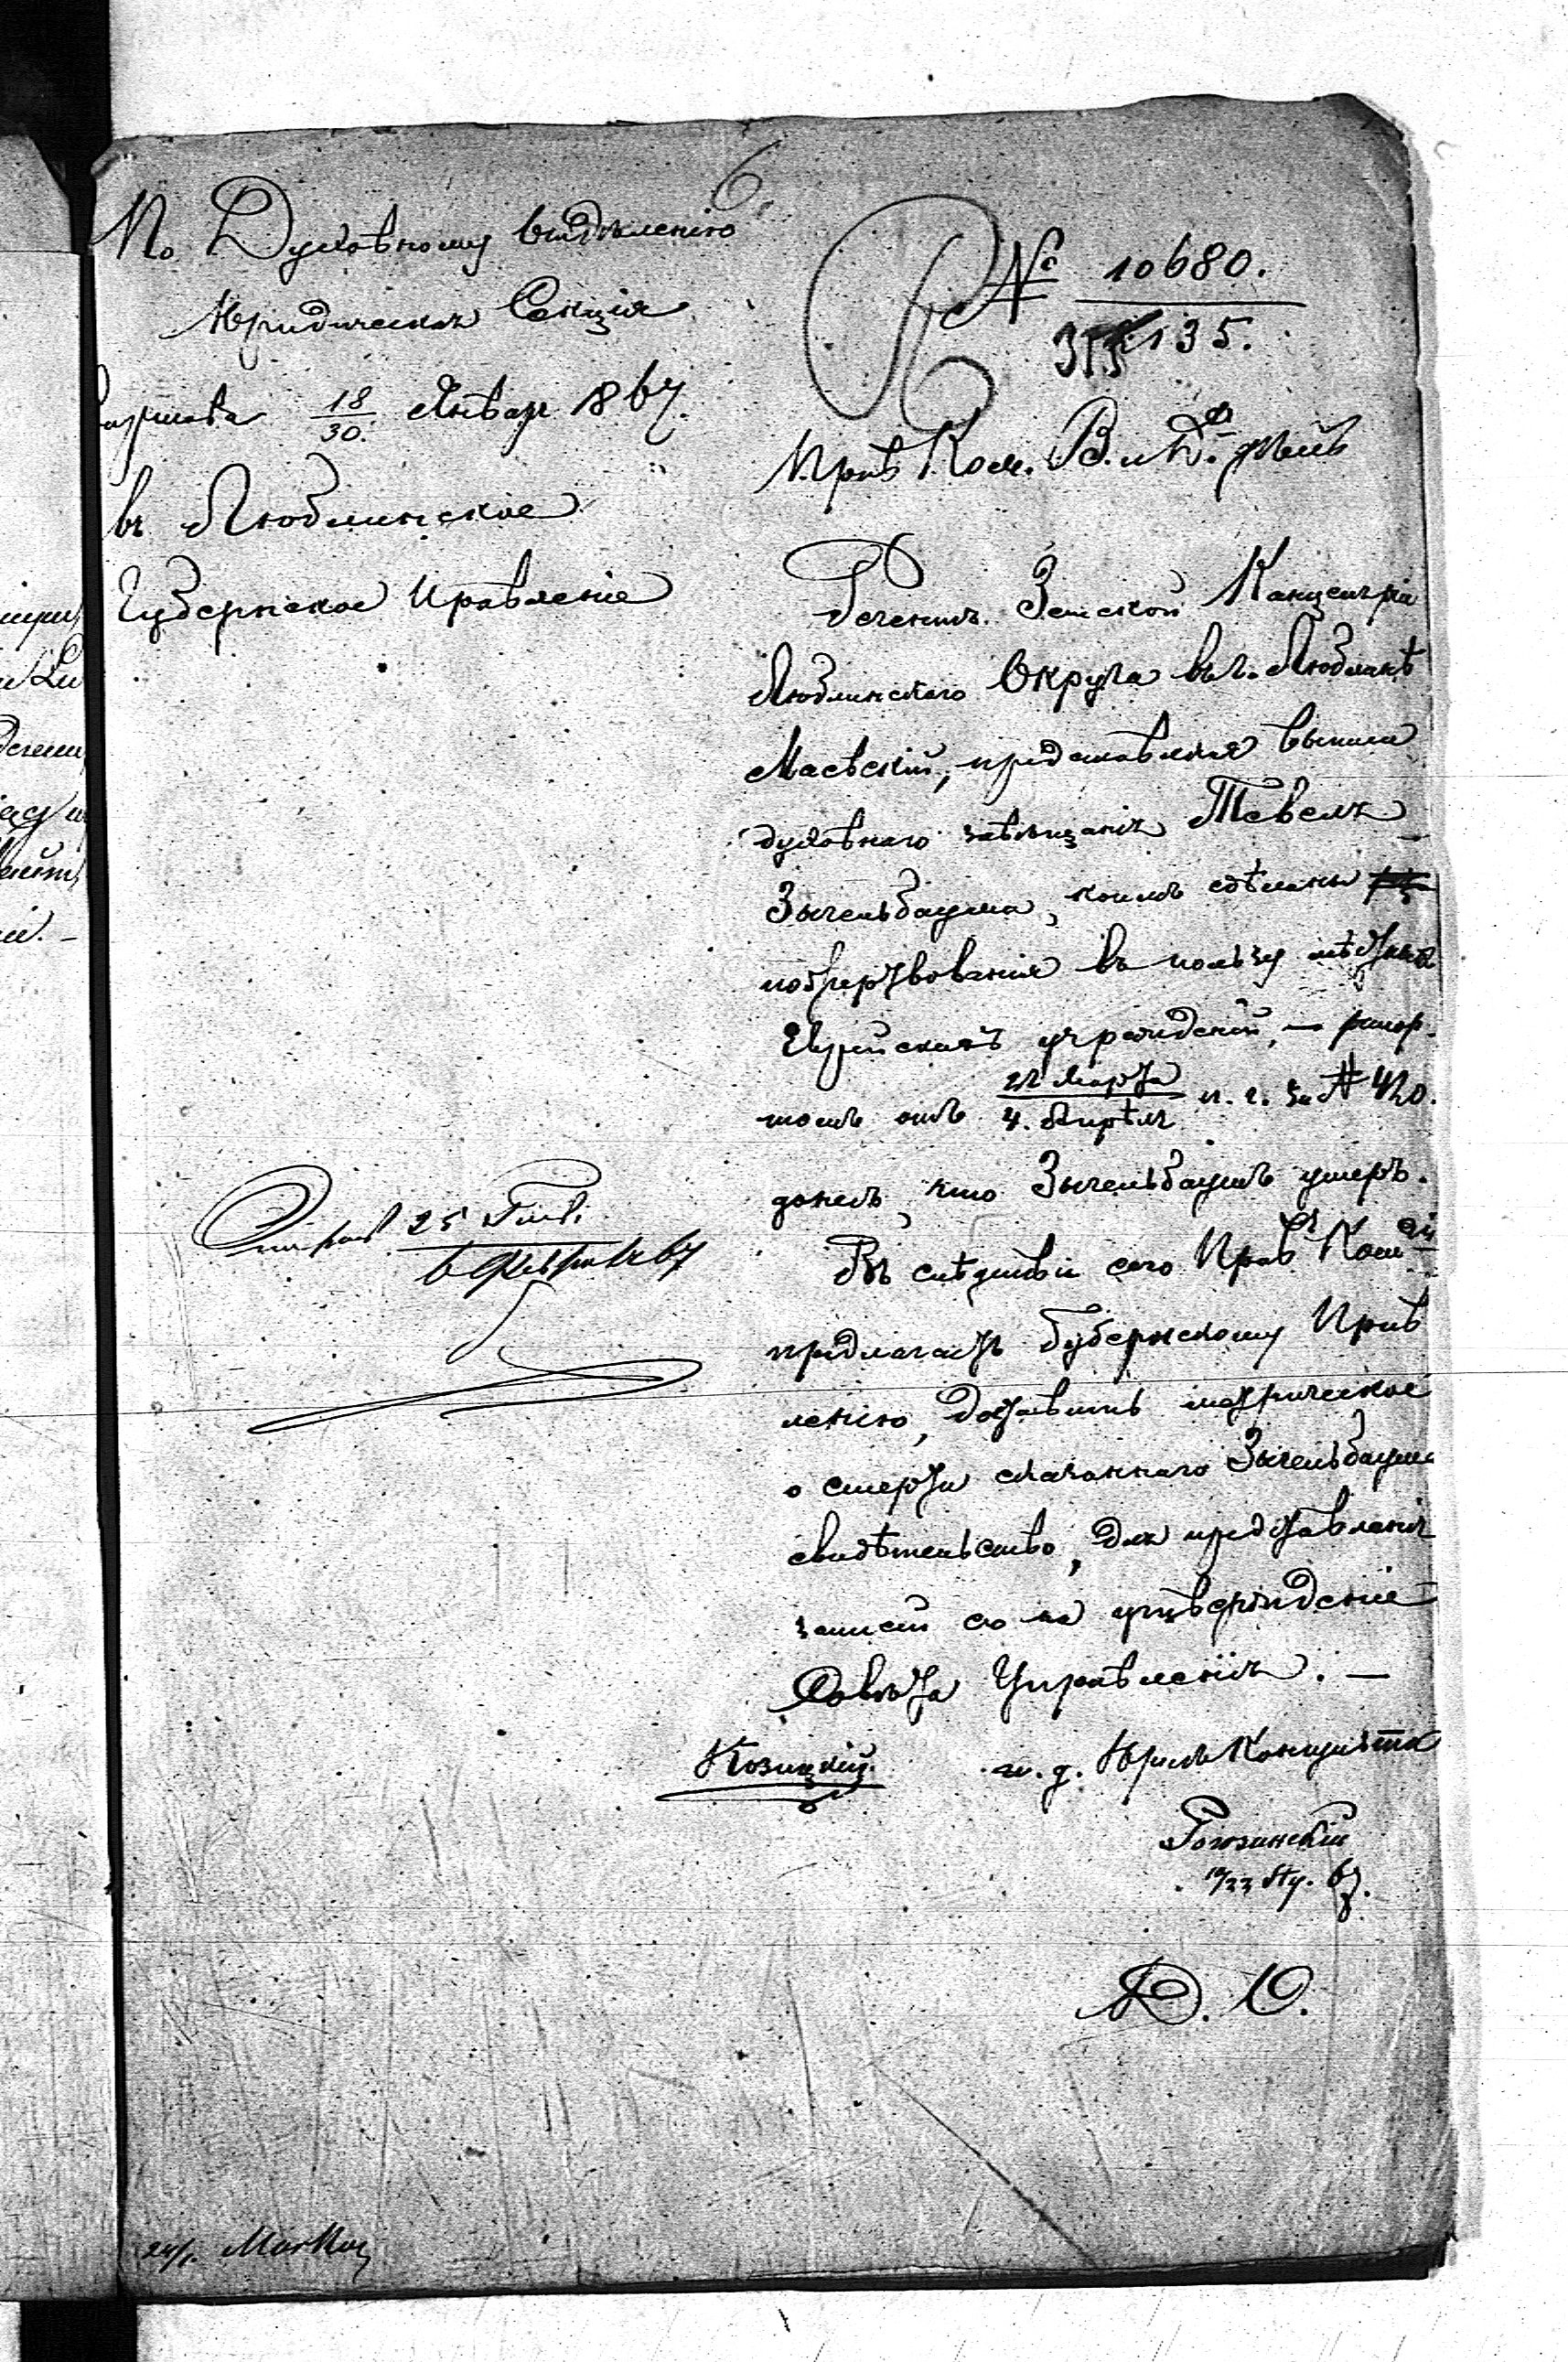 6
По Духовному Отдѣленію
Юридическая Секція
Варшава 18/30 Января 1867.
въ Люблинское
Губернское Правленіе
№ 10680.
135.
Прав. Ком. В. и Д. дѣлъ
Регентъ Земской Канцеляріи
Люблинскаго Округа въ г. Люблинѣ
Маевскій, представляя выписи
духовнаго завѣщанія Тевеля
Зыгельбаума, коимъ сдѣланы
пожертвованія въ пользу мѣстныхъ
Еврейскихъ учрежденій, — рапор-
томъ отъ 22 Марта / 4. Апрѣля п. г. за № 420.
донесъ, что Зыгельбаумъ умеръ.
Въ слѣдствіи сего Прав. Ком.
предлагаетъ Губернскому Прав
ленію, доставить метрическое
о смерти сказаннаго Зыгельбаума
свидѣтельство, для представленія
записей его на утвержденіе
Совѣта Управленія. —
25
67
Козицкій.
и. д. Юрисъ Консульта
19/22 Sty. 67.
D. O.